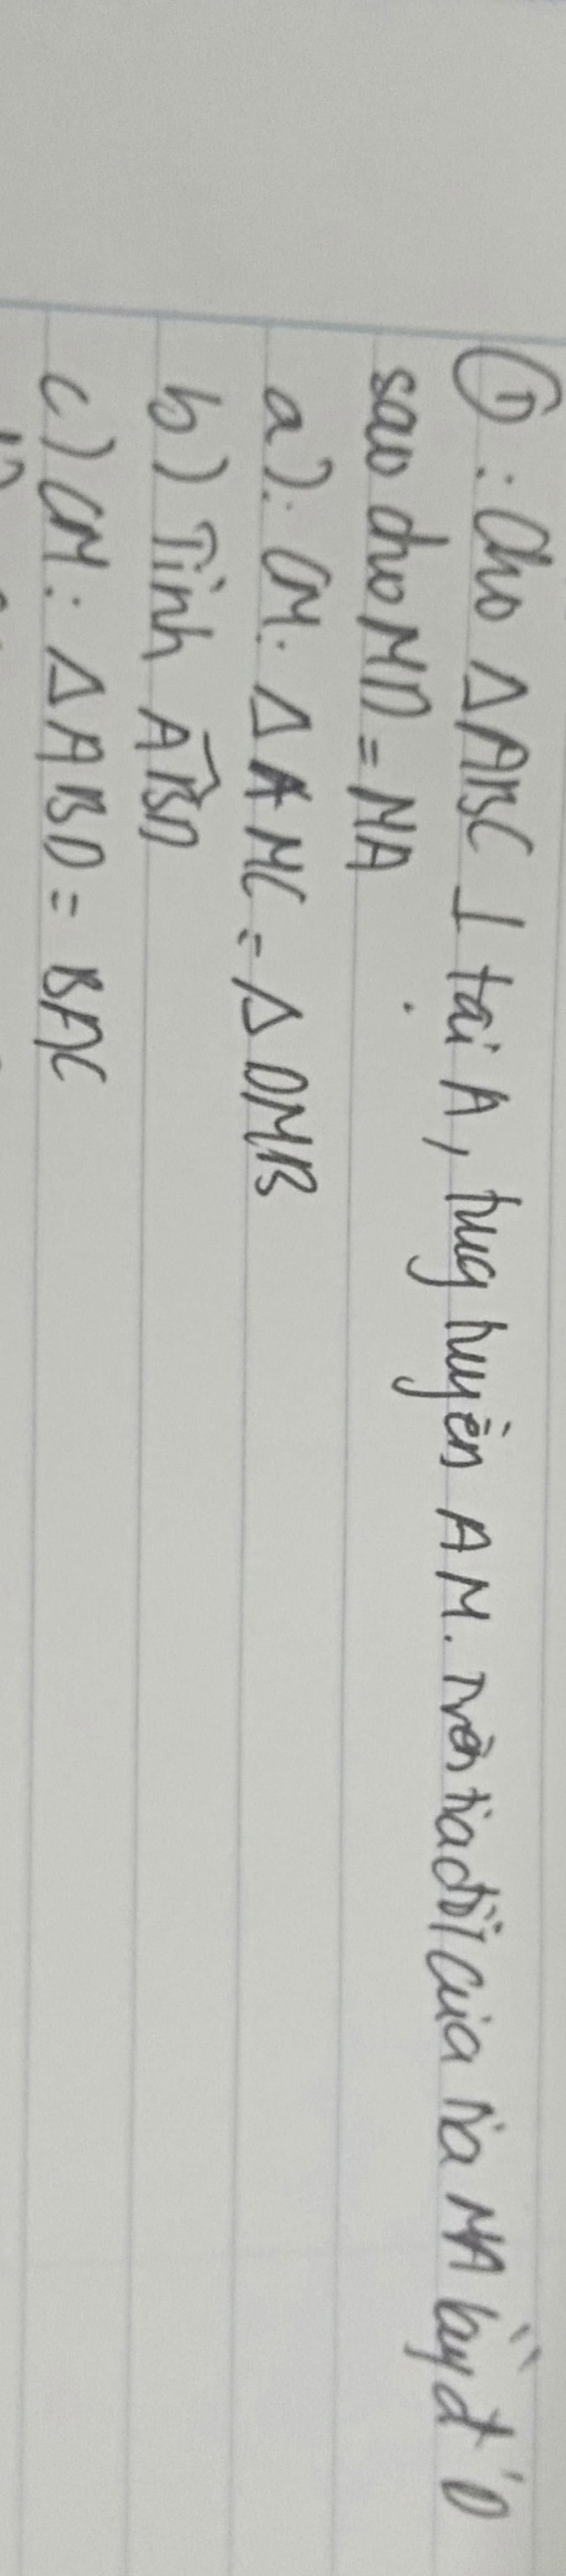 ①: Cho ΔABC ⊥ tại A, trug tuyến AM. Trên tia đối của tia MA lấy đ' D
sao cho MD = MA
a). CM: ΔAMC = ΔDMB
b) Tính ABD
c) CM: ΔABD = BAC